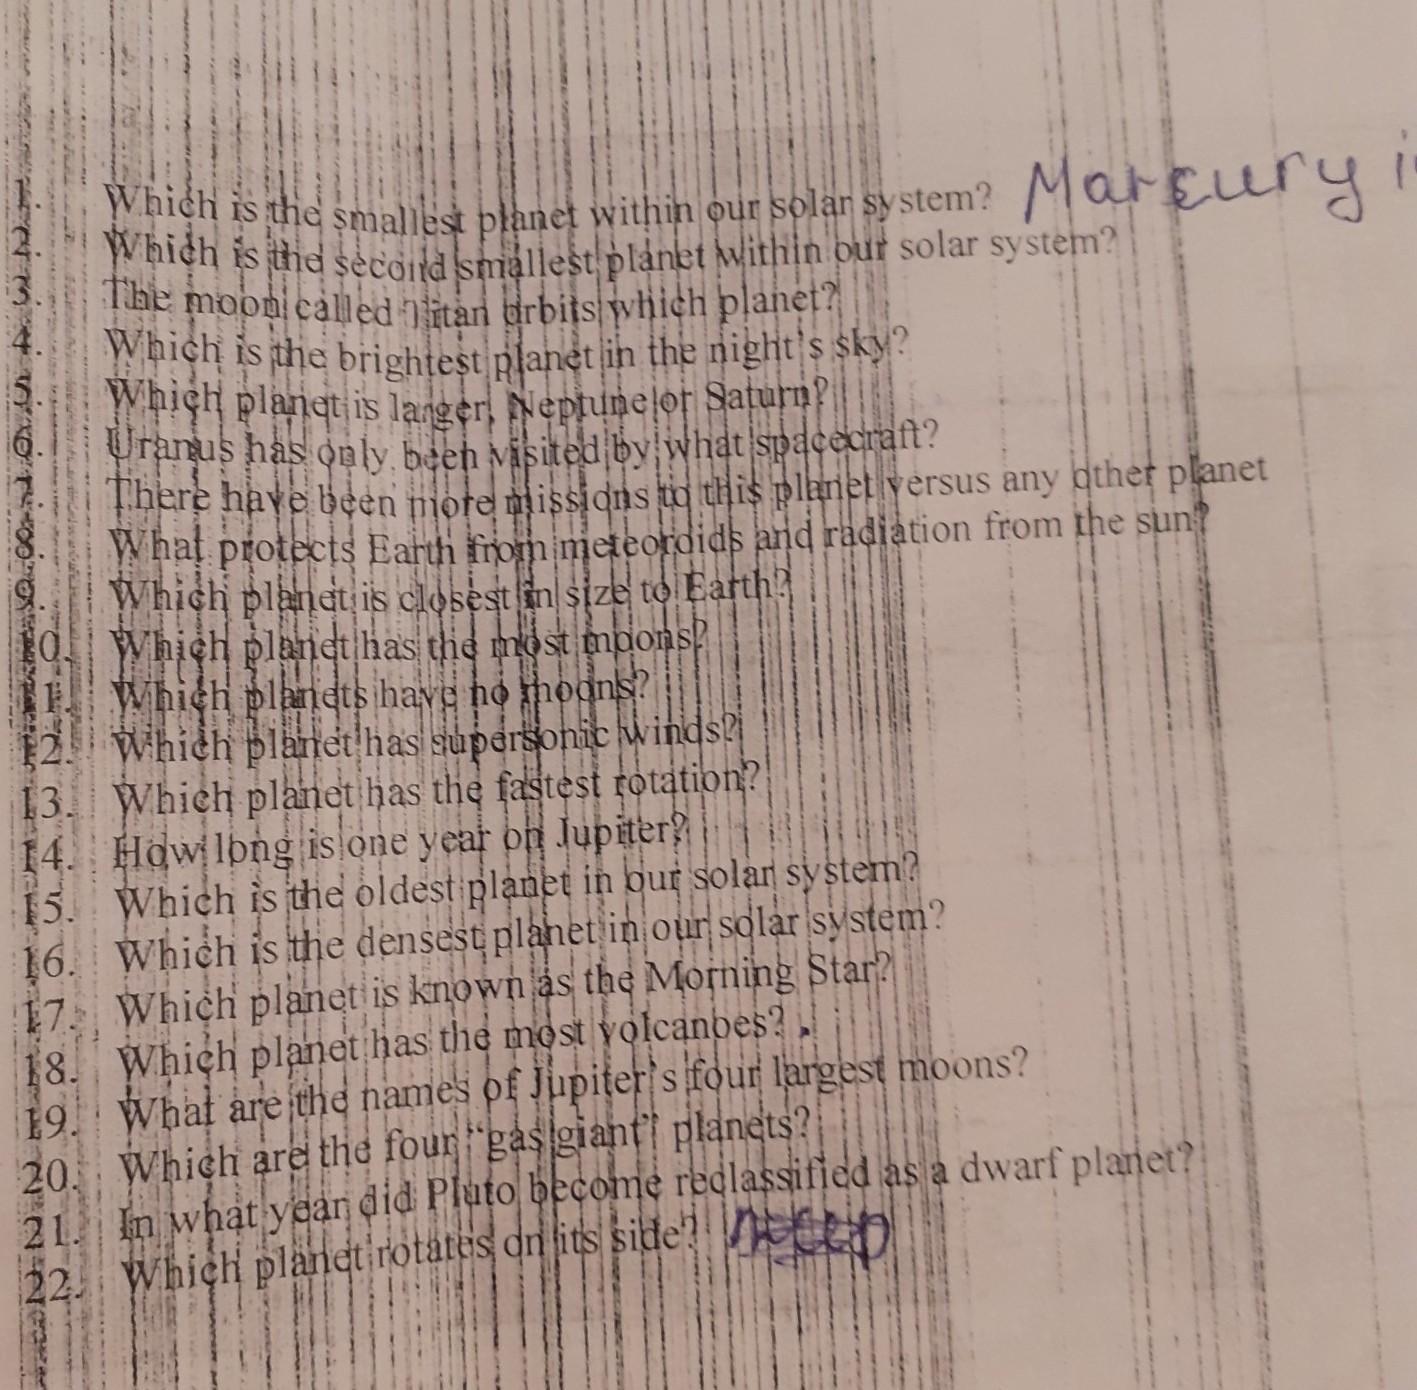 1. Which is the smallest planet within our solar system? Marcury
2. Which is the second smallest planet within our solar system?
3. The moon called Titan orbits which planet?
4. Which is the brightest planet in the night's sky?
5. Which planet is larger, Neptune or Saturn?
6. Uranus has only been visited by what spacecraft?
7. There have been more missions to this planet versus any other planet
8. What protects Earth from meteoroids and radiation from the sun?
9. Which planet is closest in size to Earth?
10. Which planet has the most moons?
11. Which planets have no moons?
12. Which planet has supersonic winds?
13. Which planet has the fastest rotation?
14. How long is one year on Jupiter?
15. Which is the oldest planet in our solar system?
16. Which is the densest planet in our solar system?
17. Which planet is known as the Morning Star?
18. Which planet has the most volcanoes?
19. What are the names of Jupiter's four largest moons?
20. Which are the four "gas giant" planets?
21. In what year did Pluto become reclassified as a dwarf planet?
22. Which planet rotates on its side?